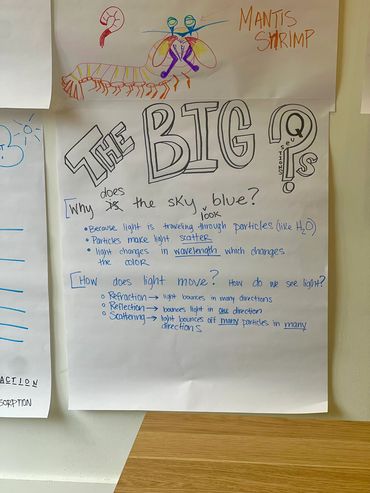 MANTIS
SHRIMP
THE BIG Qs
QUESTIONS
does
Why is the sky blue?
look
• Because light is traveling through particles (like H₂O)
• Particles make light scatter
• light changes in wavelength which changes
the color
How does light move? How do we see light?
○ Refraction → light bounces in many directions
○ Reflection → bounces light in one direction
○ Scattering → light bounces off many particles in many
directions
ACTION
SORPTION